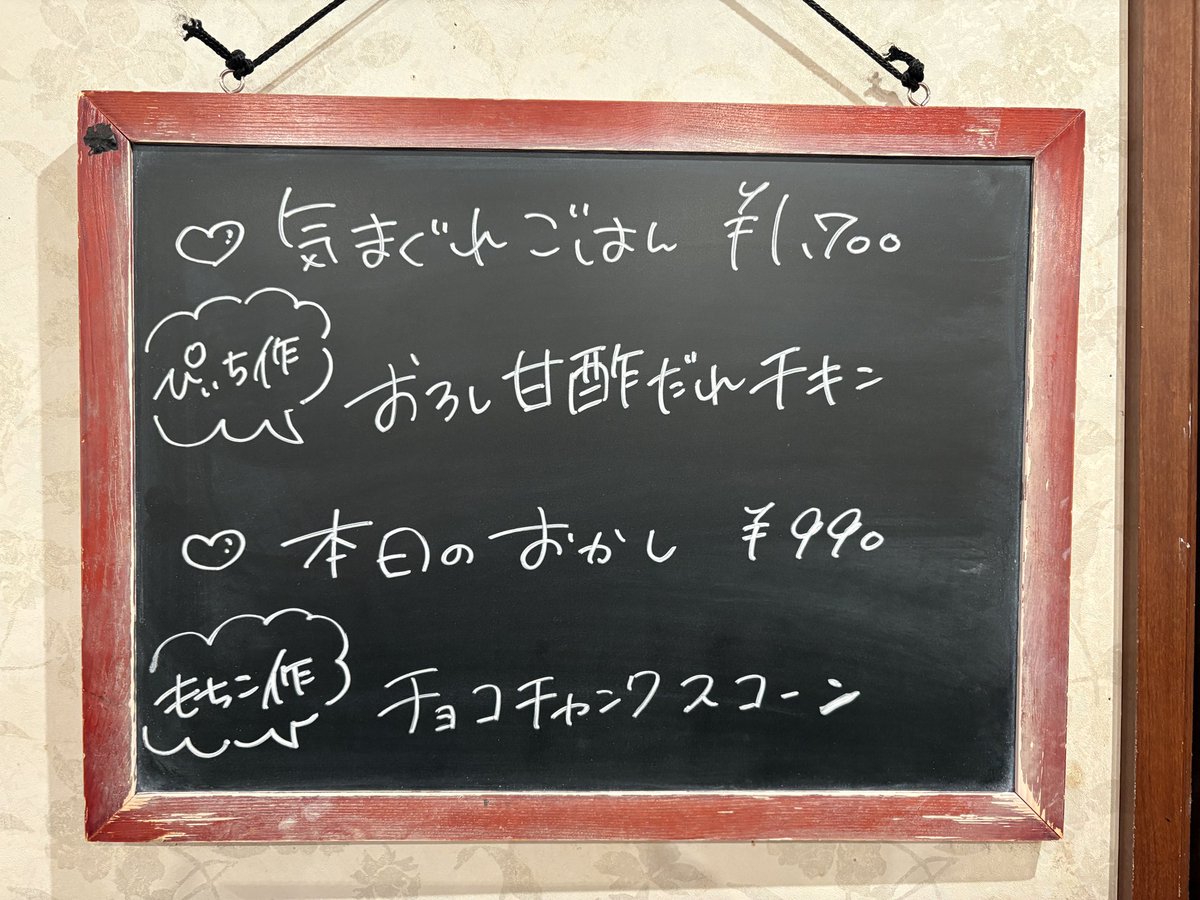 ♡ 気まぐれごはん ¥1,700
ぴぃち作
おろし甘酢だれチキン
♡ 本日のおかし ¥990
もちこ作
チョコチャンクスコーン